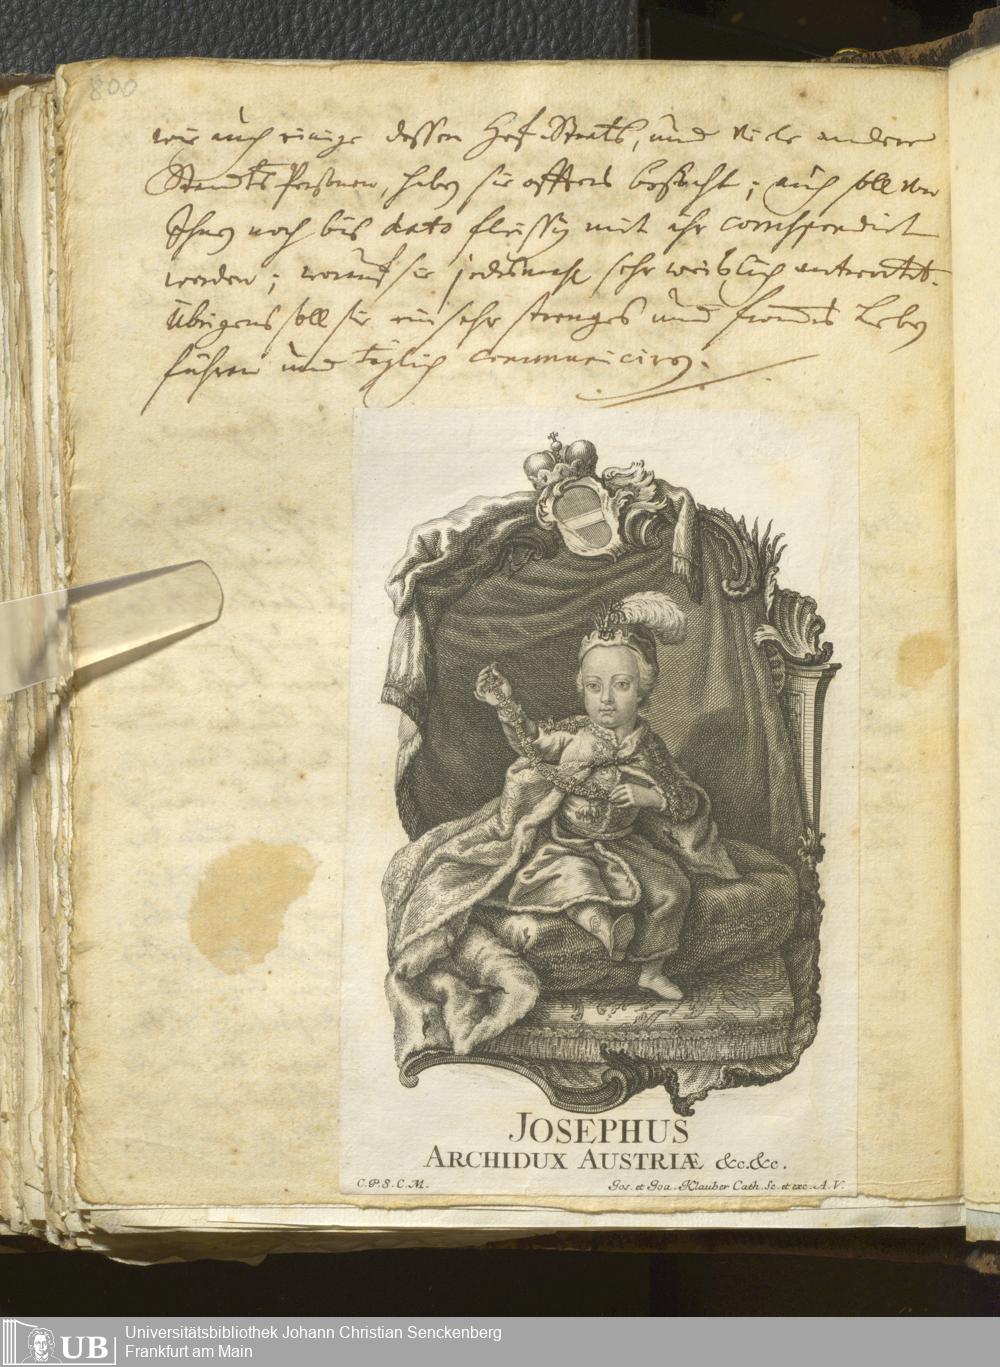 800
wie auch einige dessen Hof-Staats, und viele andere
Standts Persohnen, haben sie öffters besucht; auch soll von
Ihnen noch bis dato fleissig mit ihr correspondirt
werden; worauf sie jedesmahl sehr weiblich antwortet.
Übrigens soll sie ein sehr strenges und frommes Leben
führen und täglich communiciren.
JOSEPHUS
ARCHIDUX AUSTRIÆ &c.&c.
C.P.S.C.M.
Jos. et Joa. Klauber Cath. Sc. et exc. A.V.
UB
Universitätsbibliothek Johann Christian Senckenberg
Frankfurt am Main